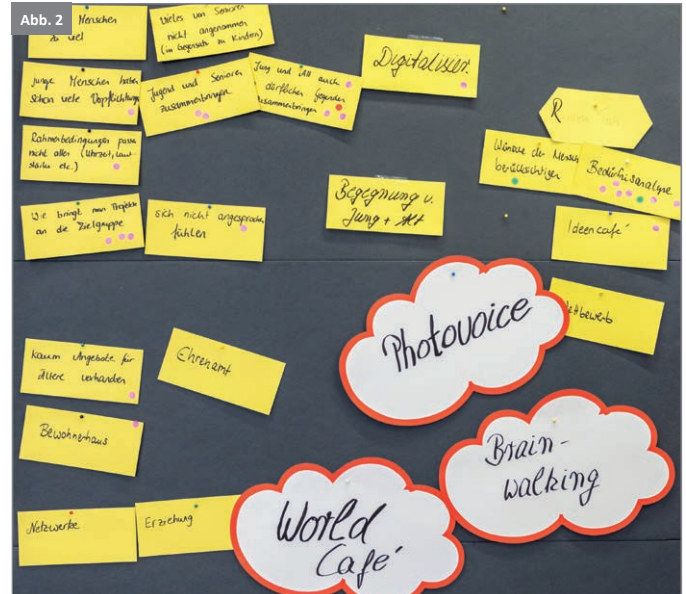 Abb. 2
Menschen
zu viel
vieles von Senioren
nicht angenommen
(im Gegensatz zu Kindern)
junge Menschen haben
schon viele Verpflichtung
Jugend und Senioren
zusammenbringen
Jung und Alt auch
dörflichen Gegenden
zusammenbringen
Digitalisier.
R
Rahmenbedingungen passen
nicht allen (Uhrzeit, Laut-
stärke etc.)
Wünsche der Mensch
berücksichtigen
Bedürfnisanalyse
Wie bringt man Projekte
an die Zielgruppe
sich nicht angesprochen
fühlen
Begegnung v.
Jung + Alt
Ideencafé
ettbewerb
Photovoice
kaum Angebote für
Ältere vorhanden
Ehrenamt
Bewohnerhaus
Brain-
walking
Netzwerke
Erziehung
World
Café